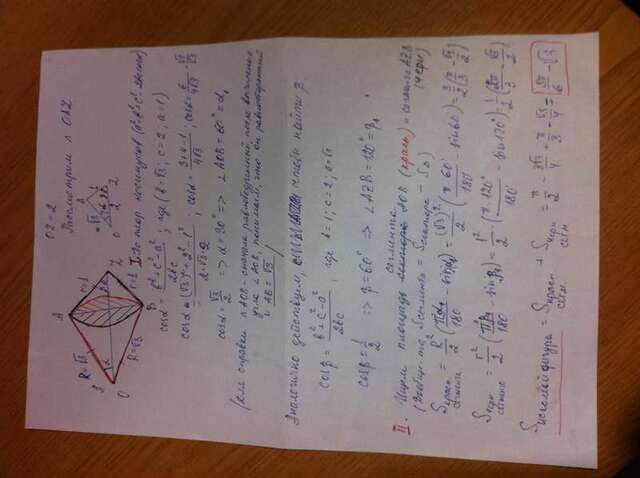 OZ = 2
Рассмотрим Δ OAZ
A
R=√3
r=1
α
O
Z
R=√3
r=1
B
A
√3
1
α
O
2
Z
I По теор косинусов (a²=b²+c²-2bc cosα)
cosα = (b²+c²-a²)/2bc ; где (b=√3; c=2, a=1)
cosα = ((√3)²+2²-1²)/(2·√3·2) ; cosα = (3+4-1)/4√3 ; cosα = 6/4√3 = √3/
cosα = √3/2 => α=30° => ∠AOB = 60° = α₁
/Для справки Δ AOB - сначала равнобедренный, после вычисления
угла ∠AOB, понимаем, что он равносторонний
и AB = √3 /
Аналогично действуем, чтобы найти β
cosβ = (b²+c²-a²)/2bc , где b=1; c=2; a=√3
cosβ = 1/2 => β=60° => ∠AZB = 120° = β₁
II. Ищем площадь сегмента AOB (красн) и сегмента AZB (черн)
(Вообще-то, Sсегмента = Sсектора - SΔ)
Sкрасн сегмента = R²/2 (πα₁/180 - sinα₁) = (√3)²/2 (π·60/180 - sin60) = 3/2 (π/3 - √3/2)
Sчерн сегмент = r²/2 (πβ₁/180 - sinβ₁) = 1²/2 · (π·120°/180 - sin120°) = 1/2 (2π/3 - √3/2)
Sискомой фигуры = Sкрасн сегм. + Sчерн сегм = π/2 - 3√3/4 + π/3 - √3/4 = 5π/6 - √3